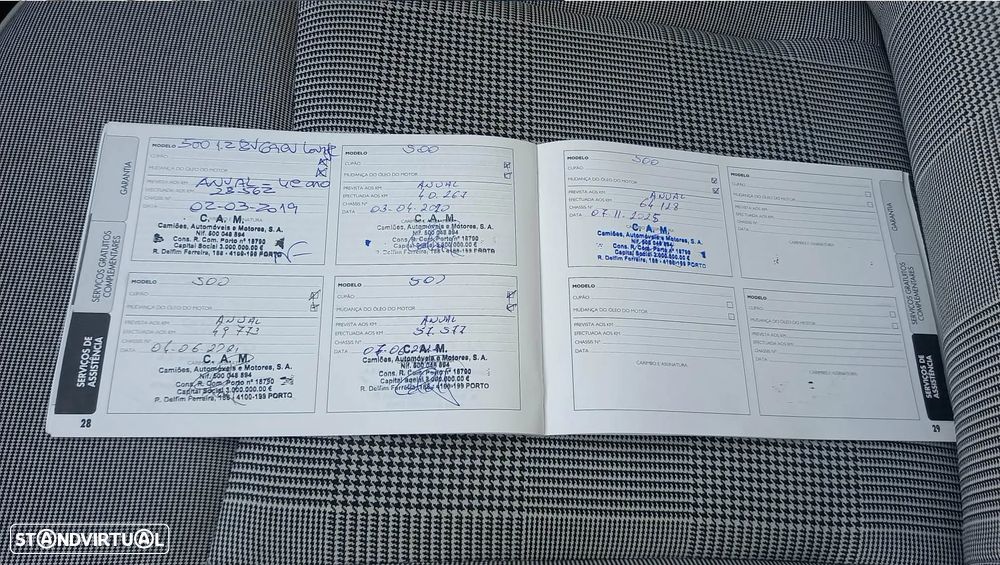 GARANTIA
SERVIÇOS GRATUITOS
COMPLEMENTARES
SERVIÇOS DE
ASSISTÊNCIA
MODELO 500 1.2
CUPÃO
MUDANÇA DO ÓLEO DO MOTOR
PREVISTA AOS KM ANUAL
EFECTUADA AOS KM
CHASSIS Nº
DATA 02-03-2019
C. A. M.
Camiões, Automóveis e Motores, S. A.
Nif. 500 048 894
Cons. R. Com. Porto nº 18790
Capital Social 3.000.000.00 €
R. Delfim Ferreira, 188 - 4100-199 PORTO
MODELO 500
CUPÃO
MUDANÇA DO ÓLEO DO MOTOR
PREVISTA AOS KM ANUAL
EFECTUADA AOS KM 40.267
CHASSIS Nº
DATA 03-04-2020
C. A. M.
Camiões, Automóveis e Motores, S. A.
Nif. 500 048 894
Cons. R. Com. Porto nº 18790
Capital Social 3.000.000.00 €
R. Delfim Ferreira, 188 - 4100-199 PORTO
MODELO 500
CUPÃO
MUDANÇA DO ÓLEO DO MOTOR
PREVISTA AOS KM ANUAL
EFECTUADA AOS KM 49 773
CHASSIS Nº
DATA
C. A. M.
Camiões, Automóveis e Motores, S. A.
Nif. 500 048 894
Cons. R. Com. Porto nº 18790
Capital Social 3.000.000.00 €
R. Delfim Ferreira, 188 - 4100-199 PORTO
MODELO 500
CUPÃO
MUDANÇA DO ÓLEO DO MOTOR
PREVISTA AOS KM ANUAL
EFECTUADA AOS KM 57.577
CHASSIS Nº
DATA
C. A. M.
Camiões, Automóveis e Motores, S. A.
Nif. 500 048 894
Cons. R. Com. Porto nº 18790
Capital Social 3.000.000.00 €
R. Delfim Ferreira, 188 - 4100-199 PORTO
28
MODELO 500
CUPÃO
MUDANÇA DO ÓLEO DO MOTOR
PREVISTA AOS KM ANUAL
EFECTUADA AOS KM
CHASSIS Nº
DATA 07.11.2025
C. A. M.
Camiões, Automóveis e Motores, S. A.
Nif. 500 048 894
Cons. R. Com. Porto nº 18790
Capital Social 3.000.000.00 €
R. Delfim Ferreira, 188 - 4100-199 PORTO
MODELO
CUPÃO
MUDANÇA DO ÓLEO DO MOTOR
PREVISTA AOS KM
EFECTUADA AOS KM
CHASSIS Nº
DATA
CARIMBO E ASSINATURA
MODELO
CUPÃO
MUDANÇA DO ÓLEO DO MOTOR
PREVISTA AOS KM
EFECTUADA AOS KM
CHASSIS Nº
DATA
CARIMBO E ASSINATURA
MODELO
CUPÃO
MUDANÇA DO ÓLEO DO MOTOR
PREVISTA AOS KM
EFECTUADA AOS KM
CHASSIS Nº
DATA
CARIMBO E ASSINATURA
GARANTIA
SERVIÇOS GRATUITOS
COMPLEMENTARES
SERVIÇOS DE
ASSISTÊNCIA
29
STANDVIRTUAL